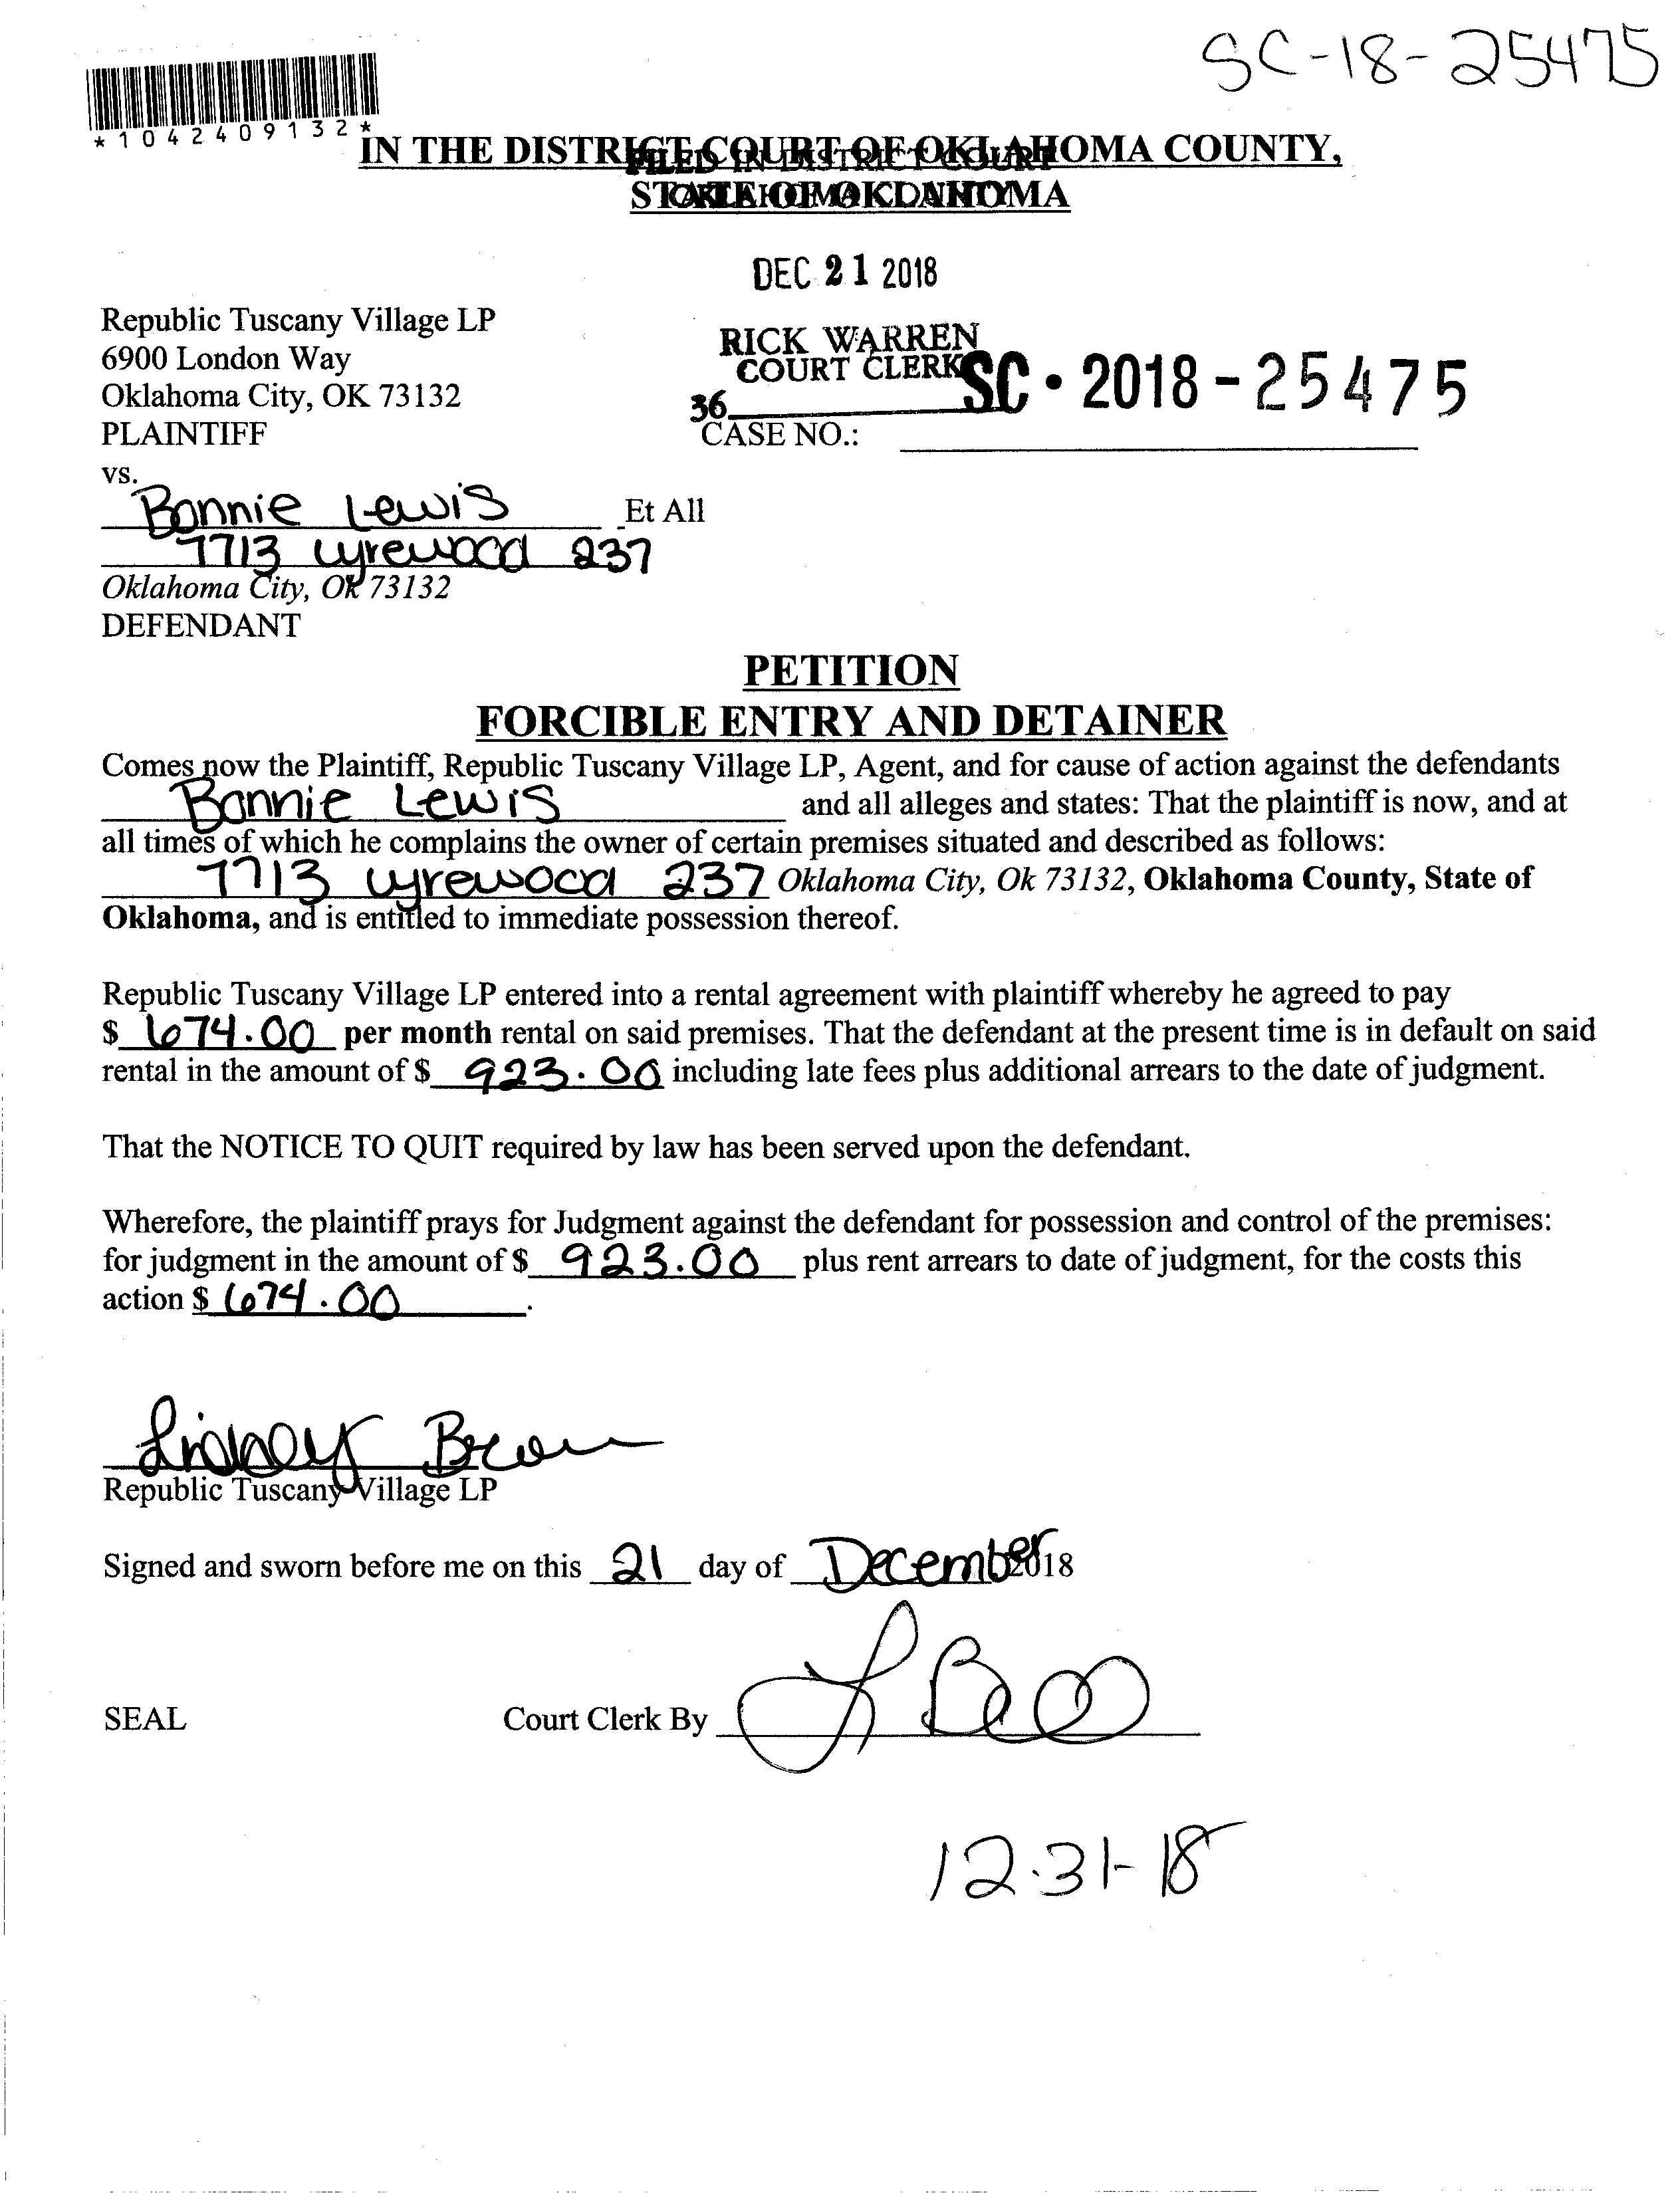 SC-18-25475
*1042409132*
IN THE DISTRICT COURT OF OKLAHOMA COUNTY,
FILED IN DISTRICT COURT
STATE OF OKLAHOMA
OKLAHOMA COUNTY
DEC 21 2018
Republic Tuscany Village LP
6900 London Way
Oklahoma City, OK 73132
PLAINTIFF
RICK WARREN
COURT CLERK
36
SC • 2018 - 25475
CASE NO.:
vs.
Bonnie Lewis Et All
7713 Lyrewood 237
Oklahoma City, Ok 73132
DEFENDANT
PETITION
FORCIBLE ENTRY AND DETAINER
Comes now the Plaintiff, Republic Tuscany Village LP, Agent, and for cause of action against the defendants
Bonnie Lewis and all alleges and states: That the plaintiff is now, and at
all times of which he complains the owner of certain premises situated and described as follows:
7713 Lyrewood 237 Oklahoma City, Ok 73132, Oklahoma County, State of
Oklahoma, and is entitled to immediate possession thereof.
Republic Tuscany Village LP entered into a rental agreement with plaintiff whereby he agreed to pay
$ 674.00 per month rental on said premises. That the defendant at the present time is in default on said
rental in the amount of $ 923.00 including late fees plus additional arrears to the date of judgment.
That the NOTICE TO QUIT required by law has been served upon the defendant.
Wherefore, the plaintiff prays for Judgment against the defendant for possession and control of the premises:
for judgment in the amount of $ 923.00 plus rent arrears to date of judgment, for the costs this
action $ 674.00.
Lindsey Brown
Republic Tuscany Village LP
Signed and sworn before me on this 21 day of December 2018
SEAL Court Clerk By
12-31-18